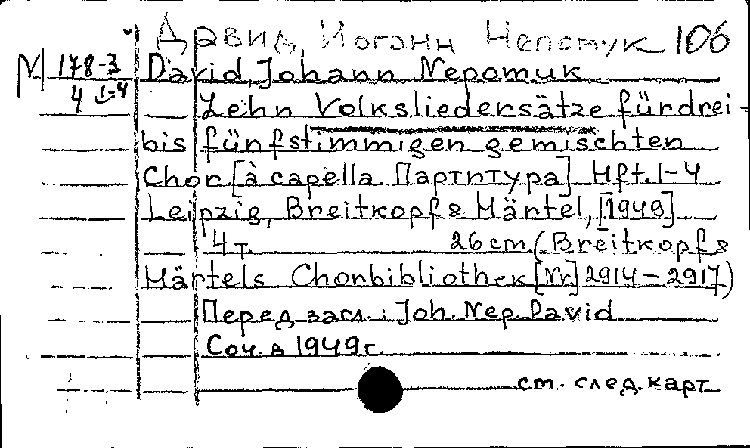 Давид, Иоганн Непомук 106
М 178-3 David, Johann Nepomuk
4 1-4 Zehn Volksliedersätze für drei-
bis fünfstimmigen gemischten
Chor [à capella Партитура] Hft. 1-4
Leipzig, Breitkopf & Härtel, [1949]
4 т. 26 cm. (Breitkopf &
Härtels Chorbibliothek [Nr] 2914-2917)
Перед загл.: Joh. Nep. David
Соч. в 1949 г.
см. след. карт